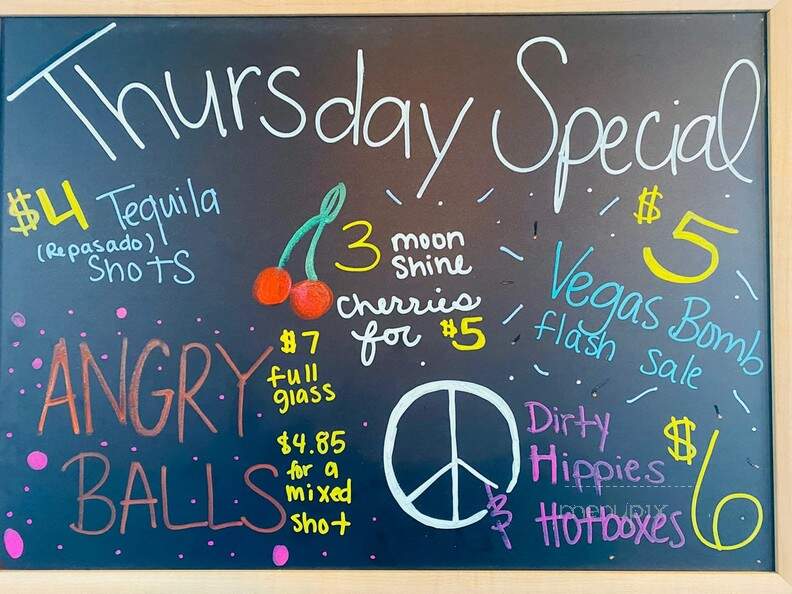 Thursday Special
$4 Tequila
(Repasado)
ShoTS
3 moon
Shine
cherries
for $5
$5
Vegas Bomb
flash sale
ANGRY
BALLS
$7
full
glass
$4.85
for a
mixed
shot
Dirty
Hippies
&
Hotboxes
$6
menupix